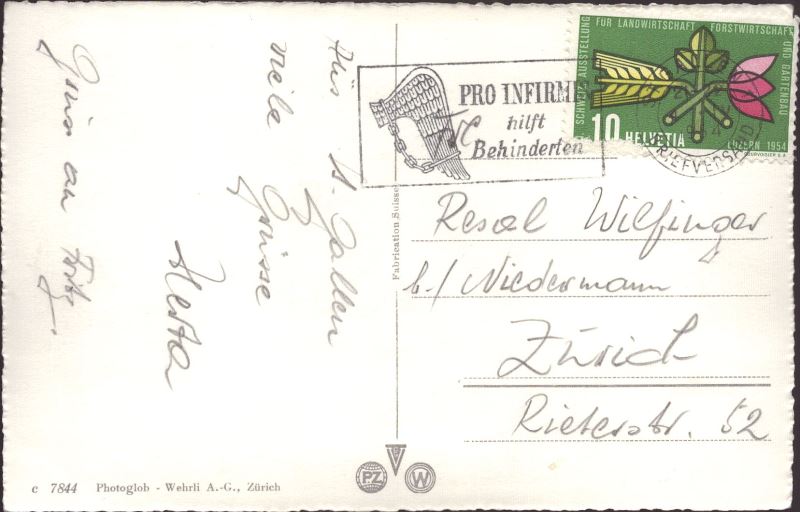 Aus St. Gallen
viele Grüsse
Herta
Gruss an Fritz
Fabrication Suisse
PRO INFIRMIS
hilft
Behinderten
SCHWEIZ. AUSSTELLUNG FÜR LANDWIRTSCHAFT FORSTWIRTSCHAFT UND GARTENBAU
LUZERN 1954
10 HELVETIA
COURVOISIER S.A.
BRIEFVERSAND
Frl.
Resel Wilfinger
b/ Niedermann
Zürich
Rieterstr. 52
c 7844 Photoglob - Wehrli A.-G., Zürich
PZ
W